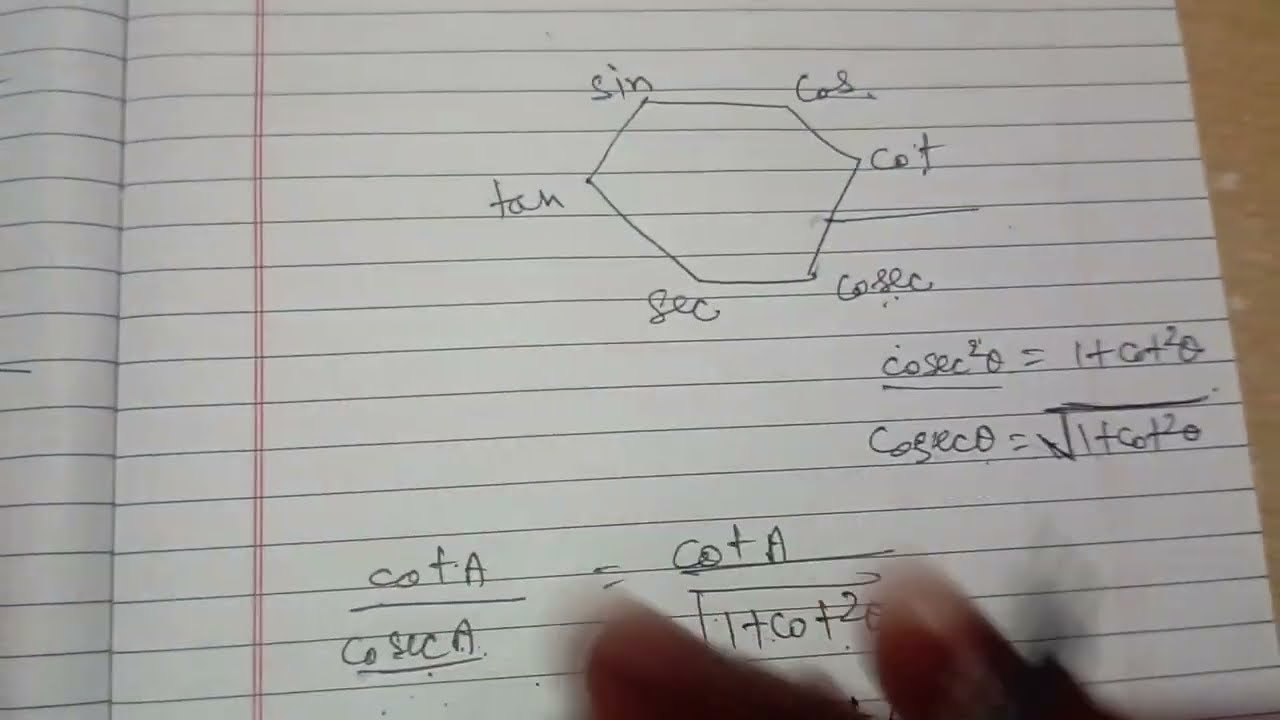 sin cos
cot
tan
cosec
sec
cosec²θ = 1+cot²θ
cosecθ = √1+cot²θ
cotA/cosecA = cotA/√1+cot²θ